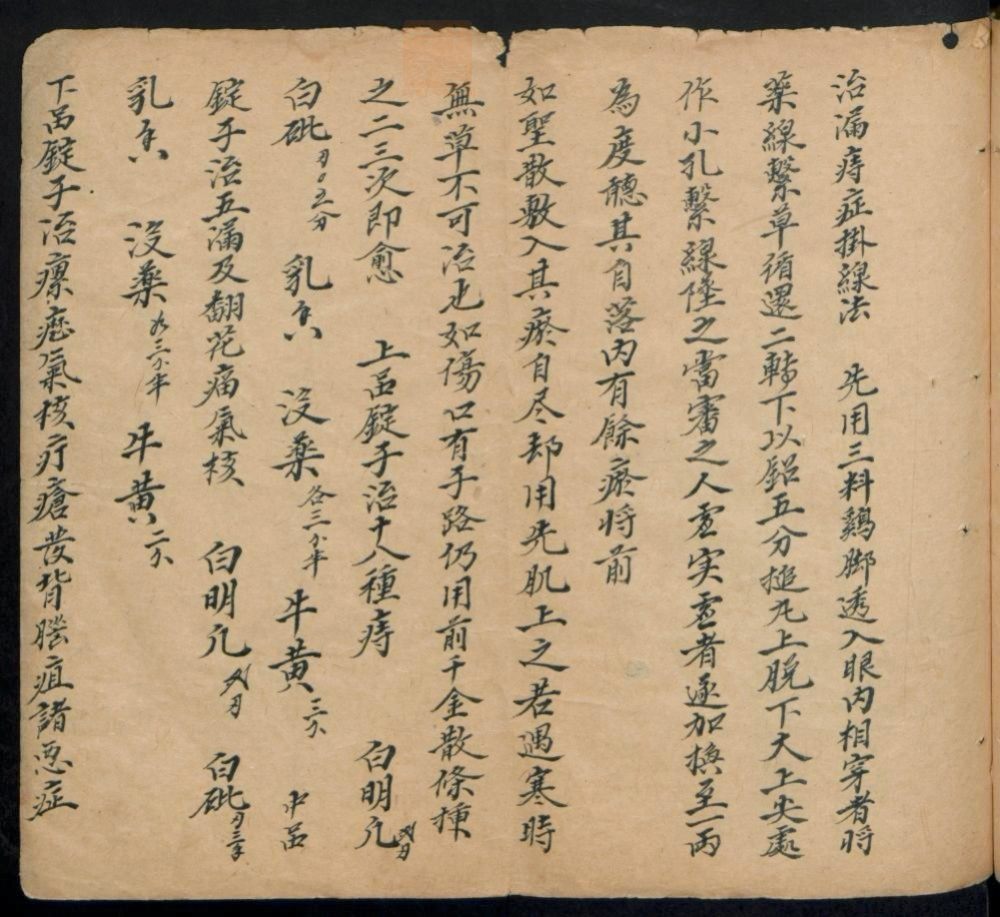 治漏痔症掛線法　先用三料鷄脚透入眼内相穿者将
藥線繫草循還二轉下以鋁五分搥凡上脫下大上尖處
作小孔繫線墜之當審之人虛实虛者逐加換至一両
為度聽其自落内有餘瘀将前
如聖散敷入其瘀自尽却用先肌上之若遇寒時
無草不可治也如傷口有手路仍用前千金散條揷
之二三次即愈　上品錠子治十八種痔　白明凡
白砒　乳香　没藥各三分半　牛黄三分　中品
錠子治五漏及翻花痛氣核　白明凡　白砒
乳香　没藥　三分半　牛黄二分
下品錠子治瘰癧氣核疔瘡發背腦疽諸惡症